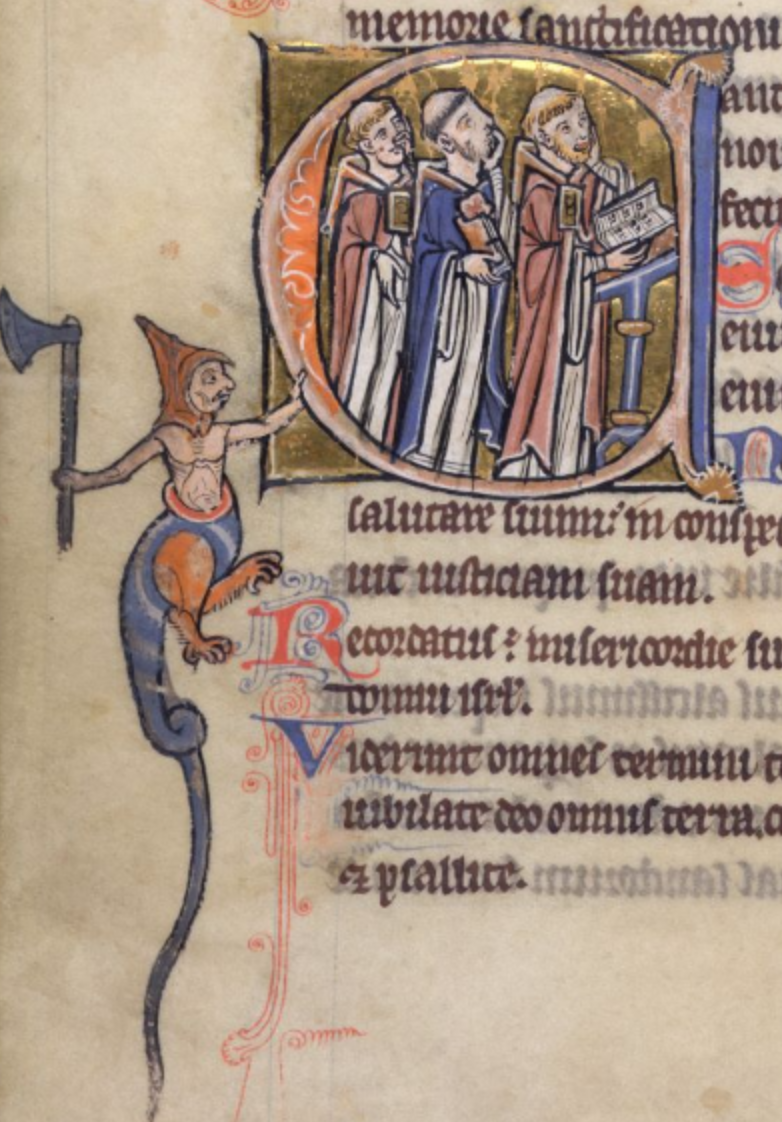 memorie sanctificationi
C
aut
noi
fecit
S
eiu
eiu
N
salutare suum: in conspe
uit iusticiam suam.
Recordatus : misericordie su
domui isrl.
Viderunt omnes termini t
iubilate deo omnis terra. c
⁊ psallite.